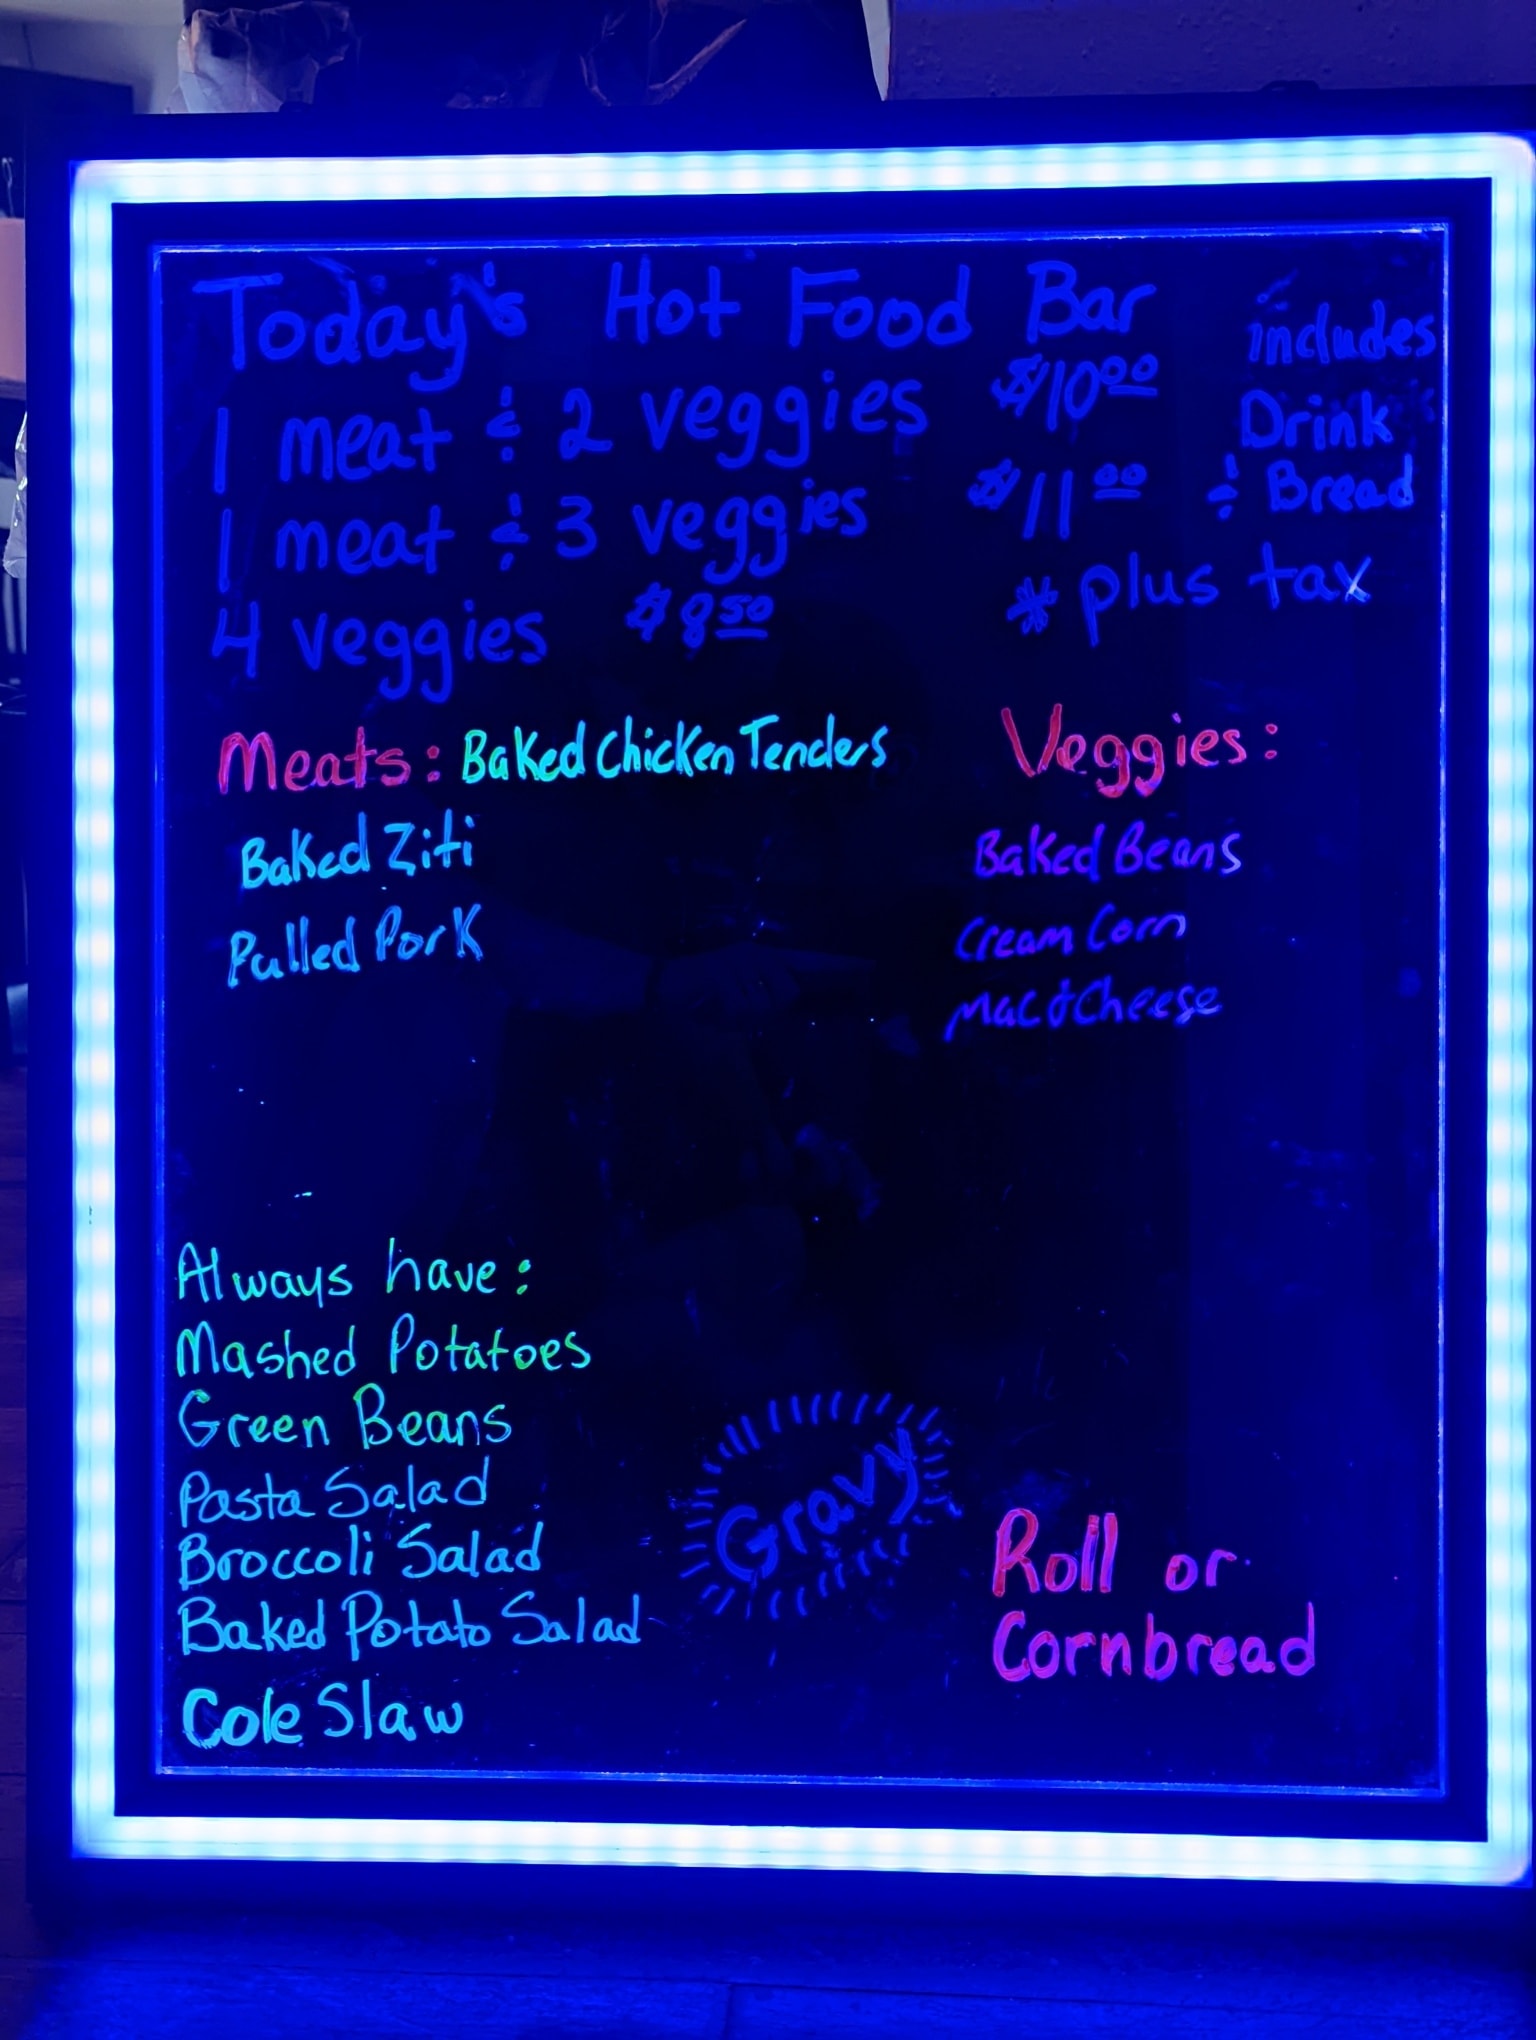 Today's Hot Food Bar
1 meat & 2 veggies $10.00
1 meat & 3 veggies $11.00
4 veggies $8.50
includes
Drink
& Bread
* plus tax
Meats: Baked Chicken Tenders
Baked Ziti
Pulled Pork
Veggies:
Baked Beans
Cream Corn
Mac & Cheese
Always have:
Mashed Potatoes
Green Beans
Pasta Salad
Broccoli Salad
Baked Potato Salad
Cole Slaw
Gravy
Roll or
Cornbread